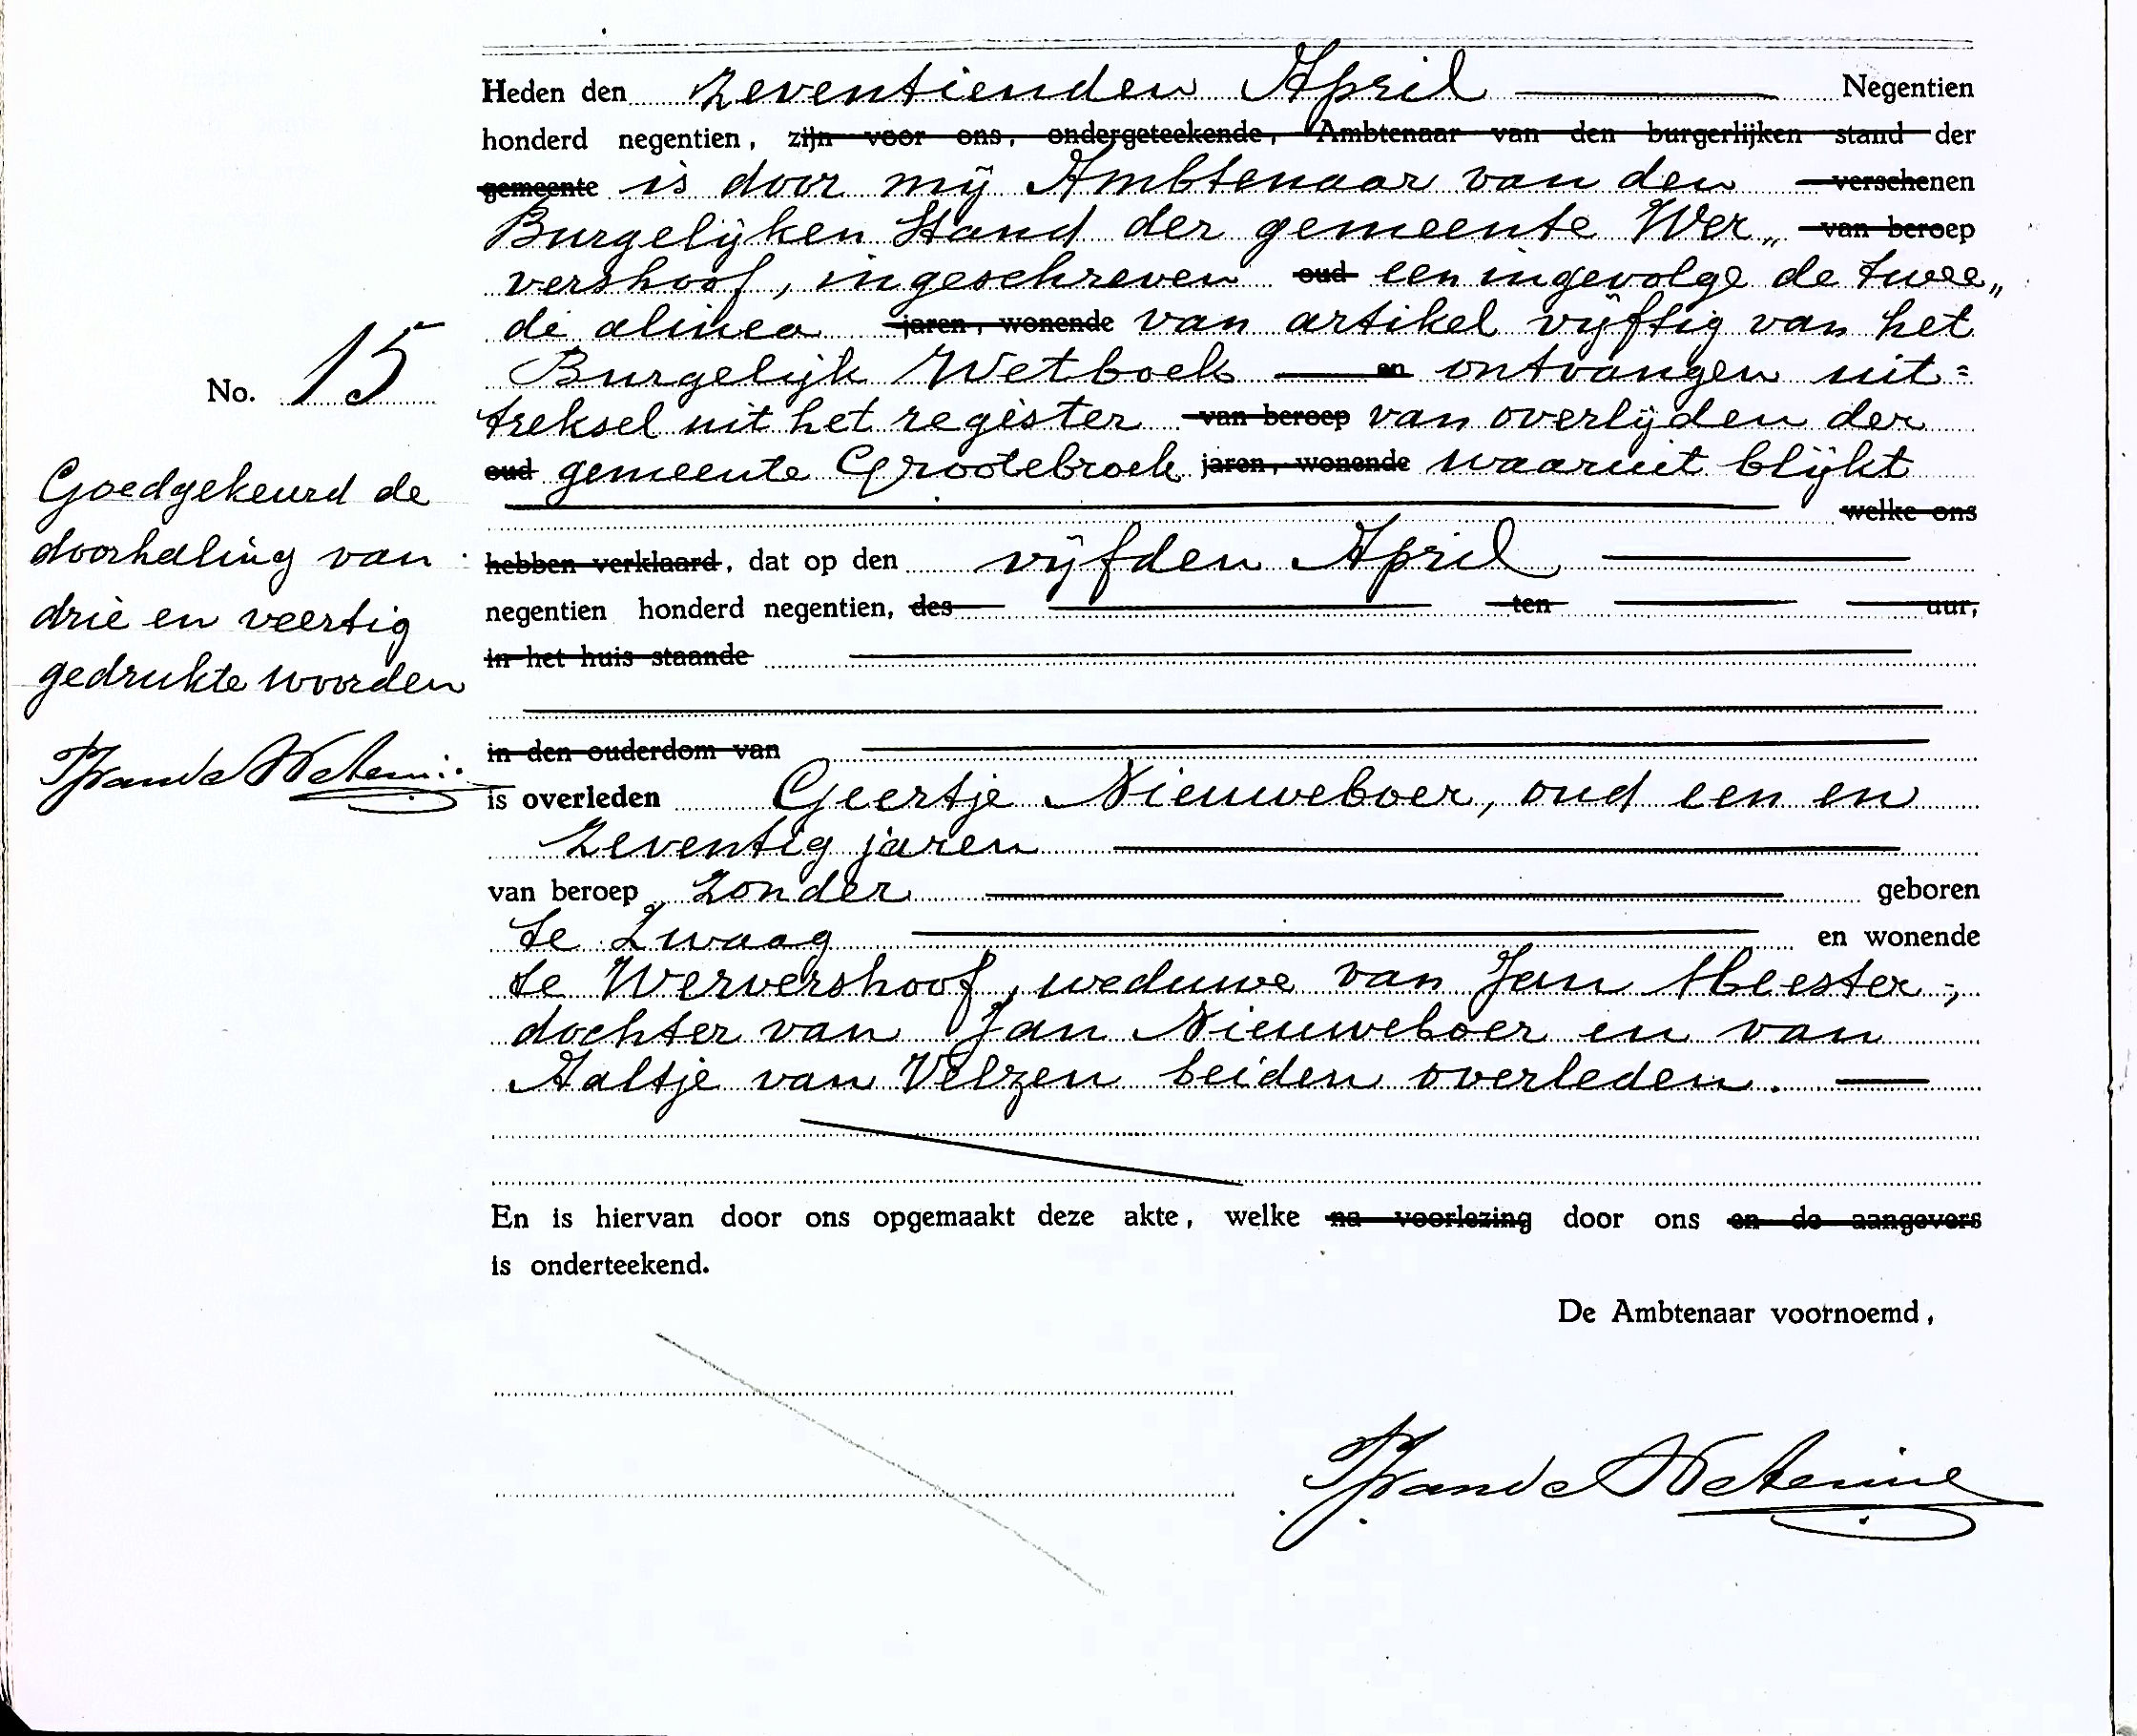 Heden den zeventienden April Negentien
honderd negentien, zijn voor ons, ondergeteekende, Ambtenaar van den burgerlijken stand der
gemeente is door mij Ambtenaar van den verschenen
Burgelijken Stand der gemeente Wer„ van beroep
vershoof, ingeschreven oud een ingevolge de twee„
de alinea jaren, wonende van artikel vijftig van het
Burgelijk Wetboek en ontvangen uit=
treksel uit het register van beroep van overlijden der
oud gemeente Grootebroek jaren, wonende waaruit blijkt
welke ons
hebben verklaard, dat op den vijfden April
negentien honderd negentien, des ten uur,
in het huis staande
in den ouderdom van
is overleden Geertje Nieuweboer, oud een en
zeventig jaren
van beroep zonder geboren
te Zwaag en wonende
te Wervershoof, weduwe van Jan Meester,
dochter van Jan Nieuweboer en van
Aaltje van Velzen beiden overleden.
En is hiervan door ons opgemaakt deze akte, welke na voorlezing door ons en de aangevers
is onderteekend.
De Ambtenaar voornoemd,
No. 15
Goedgekeurd de
doorhaling van
drie en veertig
gedrukte woorden